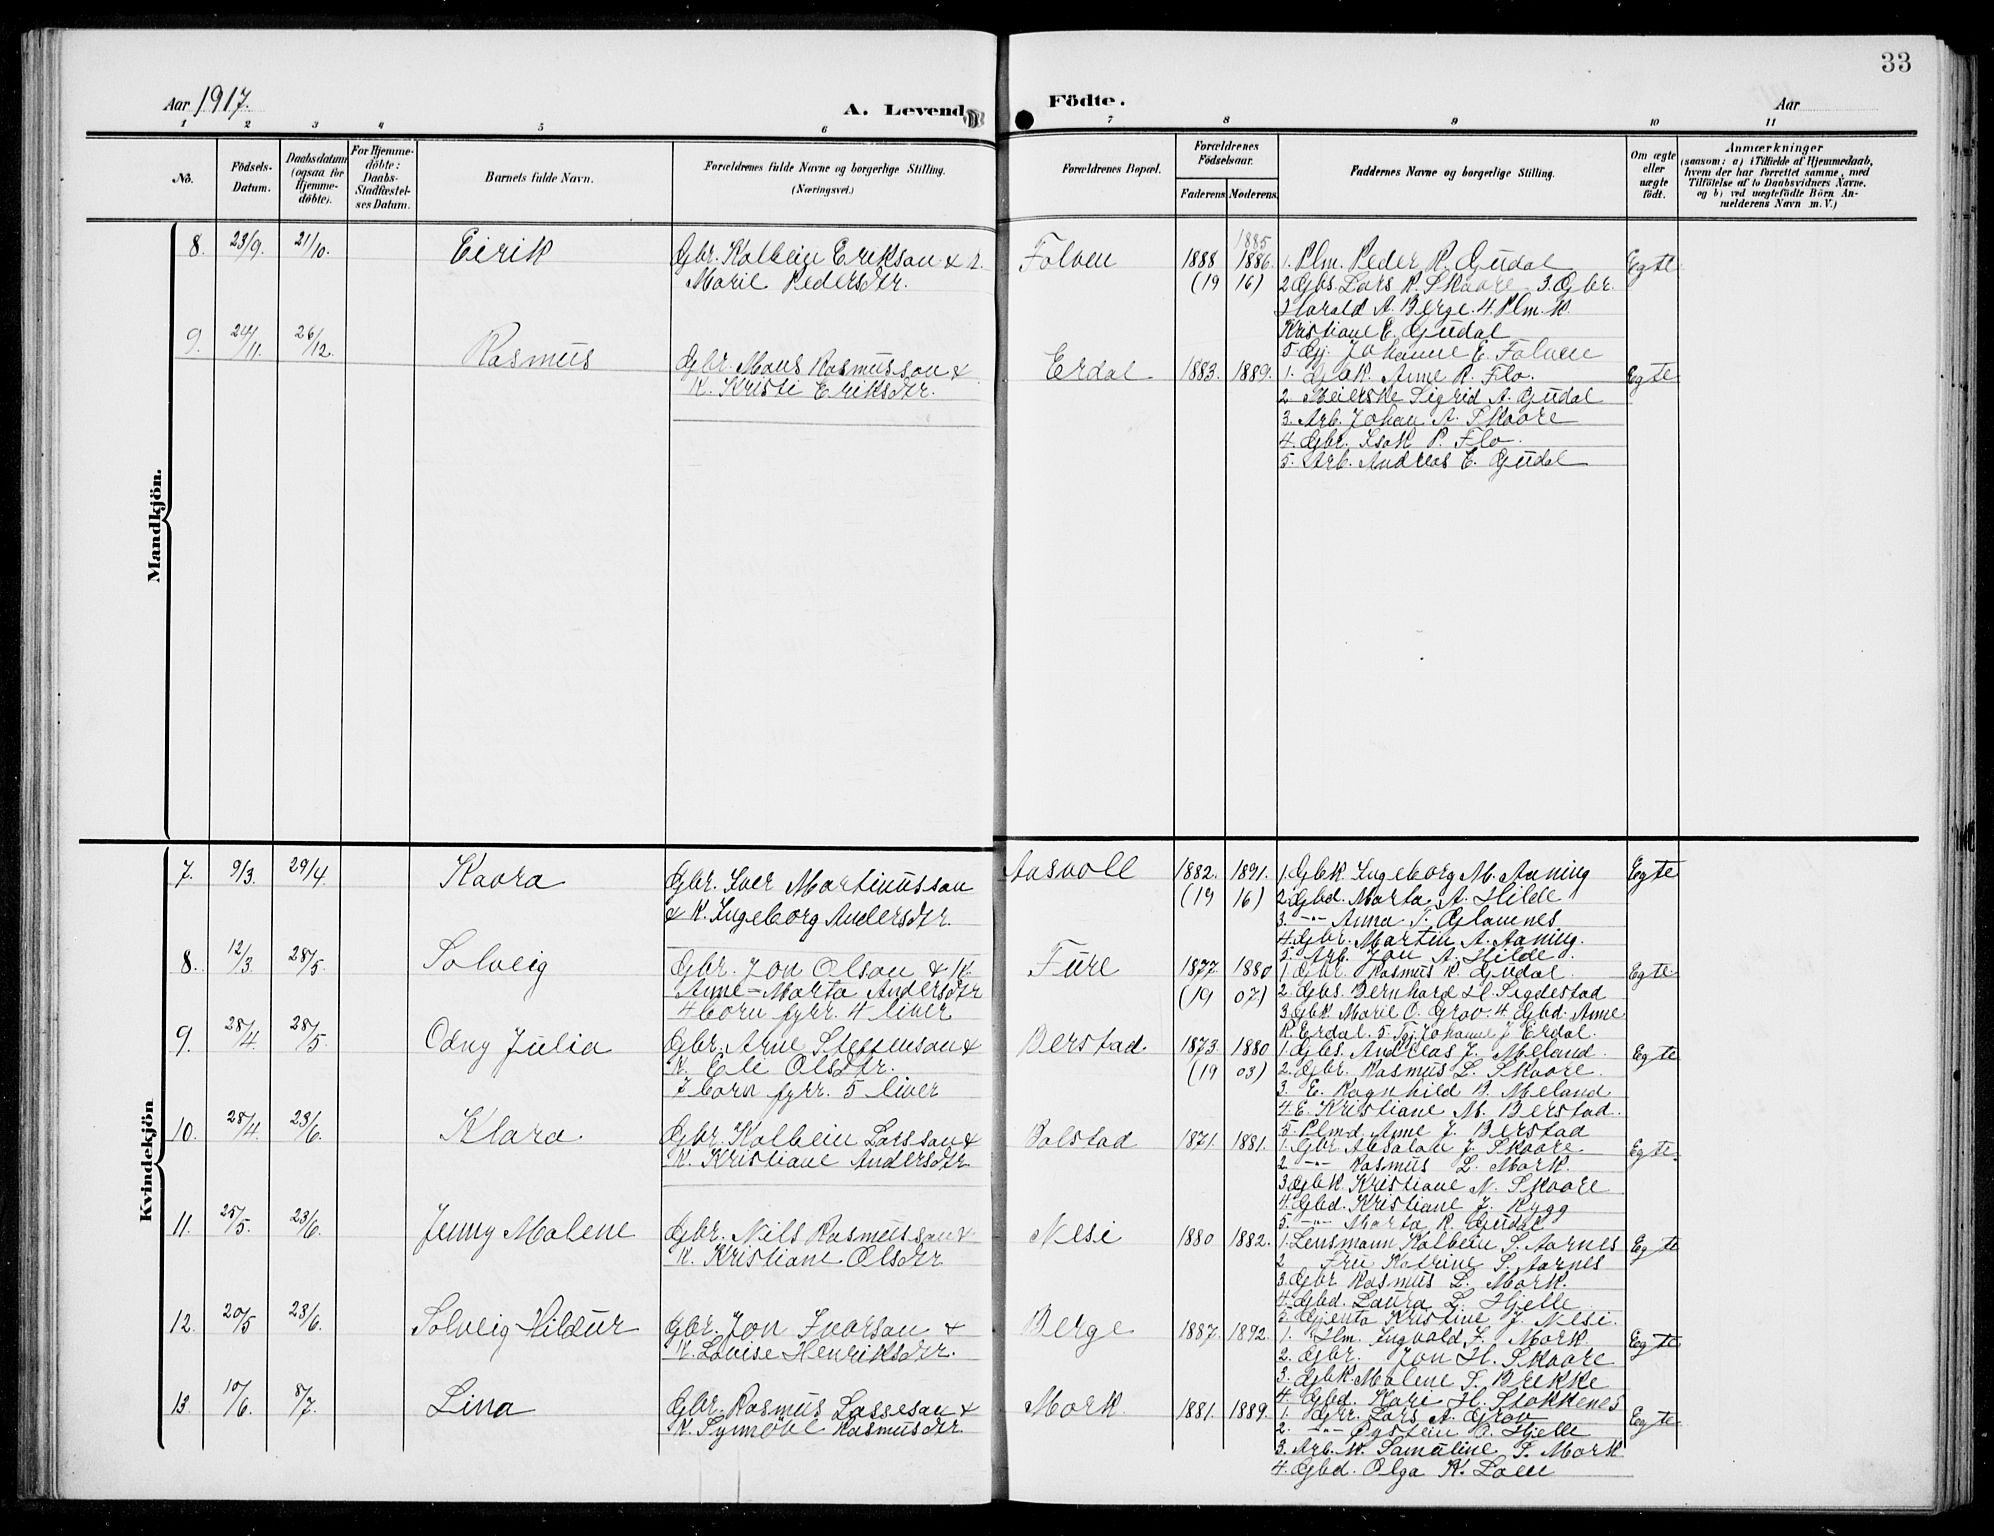 33
Aar 1917.
A. Levende Födte.
Aar
1 2 3 4 5 6 7 8 9 10 11
No.
Födsels-Datum.
Daabsdatum (ogsaa for Hjemmedöbte).
For Hjemmedöbte: Daabs-Stadfæstelses Datum.
Barnets fulde Navn.
Forældrenes fulde Navne og borgerlige Stilling. (Næringsvei.)
Forældrenes Bopæl.
Forældrenes Födselsaar.
Faderens. Moderens.
Faddernes Navne og borgerlige Stilling.
Om ægte eller uægte födt.
Anmærkninger
(saasom: a) i Tilfælde af Hjemmedaab, hvem der har forrettet samme, med Tilföielse af to Daabsvidners Navne, og b) ved uægtefödte Börn Anmelderens Navn m. V.)
Mandkjön.
8. 23/9. 21/10. Eirik
Gbr. Kolbein Erikson & K.
Marie Pedersdtr.
Folven
1885
1888 1886.
(19 16)
1. Plm. Peder R. Gjudal
2 Gbs. Lars R. Skaare 3. Gbr.
Harald A. Berge. 4. Plm. K.
Kristiane E. Gjudal
5. Gj. Johanne E. Folven
Egte
9. 24/11. 26/12. Rasmus
Gbr. Mons Rasmusson &
K. Kristi Eriksdtr.
Erdal
1883. 1889.
1. Gbk. Anne R. Flo.
2. Meierske Sigrid A. Gjudal
3. Arb. Johan A. Skaare
4. Gbr. Isak P. Flo.
5. Arb. Andreas E. Gjudal
Egte
Kvindekjön
7. 9/3. 29/4. Kaara
Gbr. Iver Martinusson
& K. Ingeborg Andersdtr.
Aasvoll
1882. 1891.
(19 16)
1. Gbk Ingeborg M. Aaning
2. Gbd. Marta A. Hilde
3. -"- Anna T. Glomnes
4. Gbr. Martin A. Aaning.
5. Arb. Jon A. Hilde.
Egte
8. 12/3. 28/5. Solveig
Gbr. Jon Olson & K.
Anne-Marta Andersdtr
4 born fyrr. 4 liver
Fure
1877. 1880
(19 07)
1. Gbr. Rasmus R. Gjudal.
2. Gbs. Bernhard H. Sigdestad
3. Gbk Marie O. Grov. 4 Gbd. Anne
R. Erdal. 5. Tgj. Johanne J. Erdal.
Egte
9. 28/4. 28/5. Odny Julia
Gbr. Arne Steffenson &
K. Eli Olsdtr.
7 born fyrr. 5 liver
Berstad.
1873. 1880
(19 03)
1. Gbs. Andreas J. Meland.
2. Gbr. Rasmus L. Skaare.
3. E. Ragnhild B. Meland
4. E. Kristiane M. Berstad.
5. Plmd. Anne J. Berstad
Egte
10. 28/4. 23/6. Klara
Gbr. Kolbein Larsson &
K. Kristiane Andersdtr
Bolstad
1871. 1881.
1. Gbr. Absalon J. Skaare
2. -"- Rasmus L. Mork.
3. Gbk Kristiane N. Skaare
4. Gbd. Kristiane J. Rygg
5. -"- Marta R. Gjudal
Egte.
11. 25/5. 23/6. Jenny Malene
Gbr. Nils Rasmusson &
K. Kristiane Olsdtr
Nesi
1880 1882.
1. Lensmann Kolbein S. Aarnes
2 Fru Katrine S. Aarnes
3. Gbr Rasmus L. Mork.
4. Gbd. Laura L. Hjelle
5. Gjenta Kristine J. Nesi.
Egte
12. 20/5 23/6. Solveig Hildur
Gbr. Jon Ivarson &
K. Lovise Henriksdtr.
Berge
1887. 1892.
1. Hm. Ingvald J. Mork
2. Gbr. Jon H. Skaare
3. Gbk Malene T. Brekke
4. Gbd. Kari H. Stokkenes
Egte
13. 10/6. 8/7. Lina
Gbr. Rasmus Lasseson &
K. Synnöve Rasmusdtr.
Mork
1881. 1889.
1. Gbr. Lars A. Grov
2. -"- Øystein O. Hjelle
3. Arb. K. Samuline T. Mork
4. Gbd. Olga K. Loen
Egte